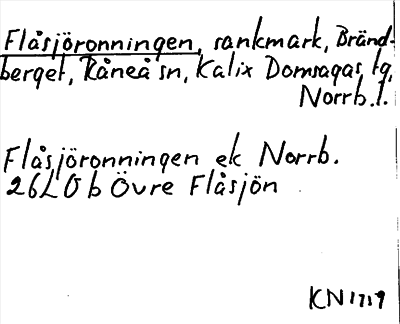 Flåsjöronningen, sankmark, Bränd-
berget, Råneå sn, Kalix Domsagas tg,
Norrb. l.
Flåsjöronningen ek Norrb.
26L 0 b Övre Flåsjön
KN 1719